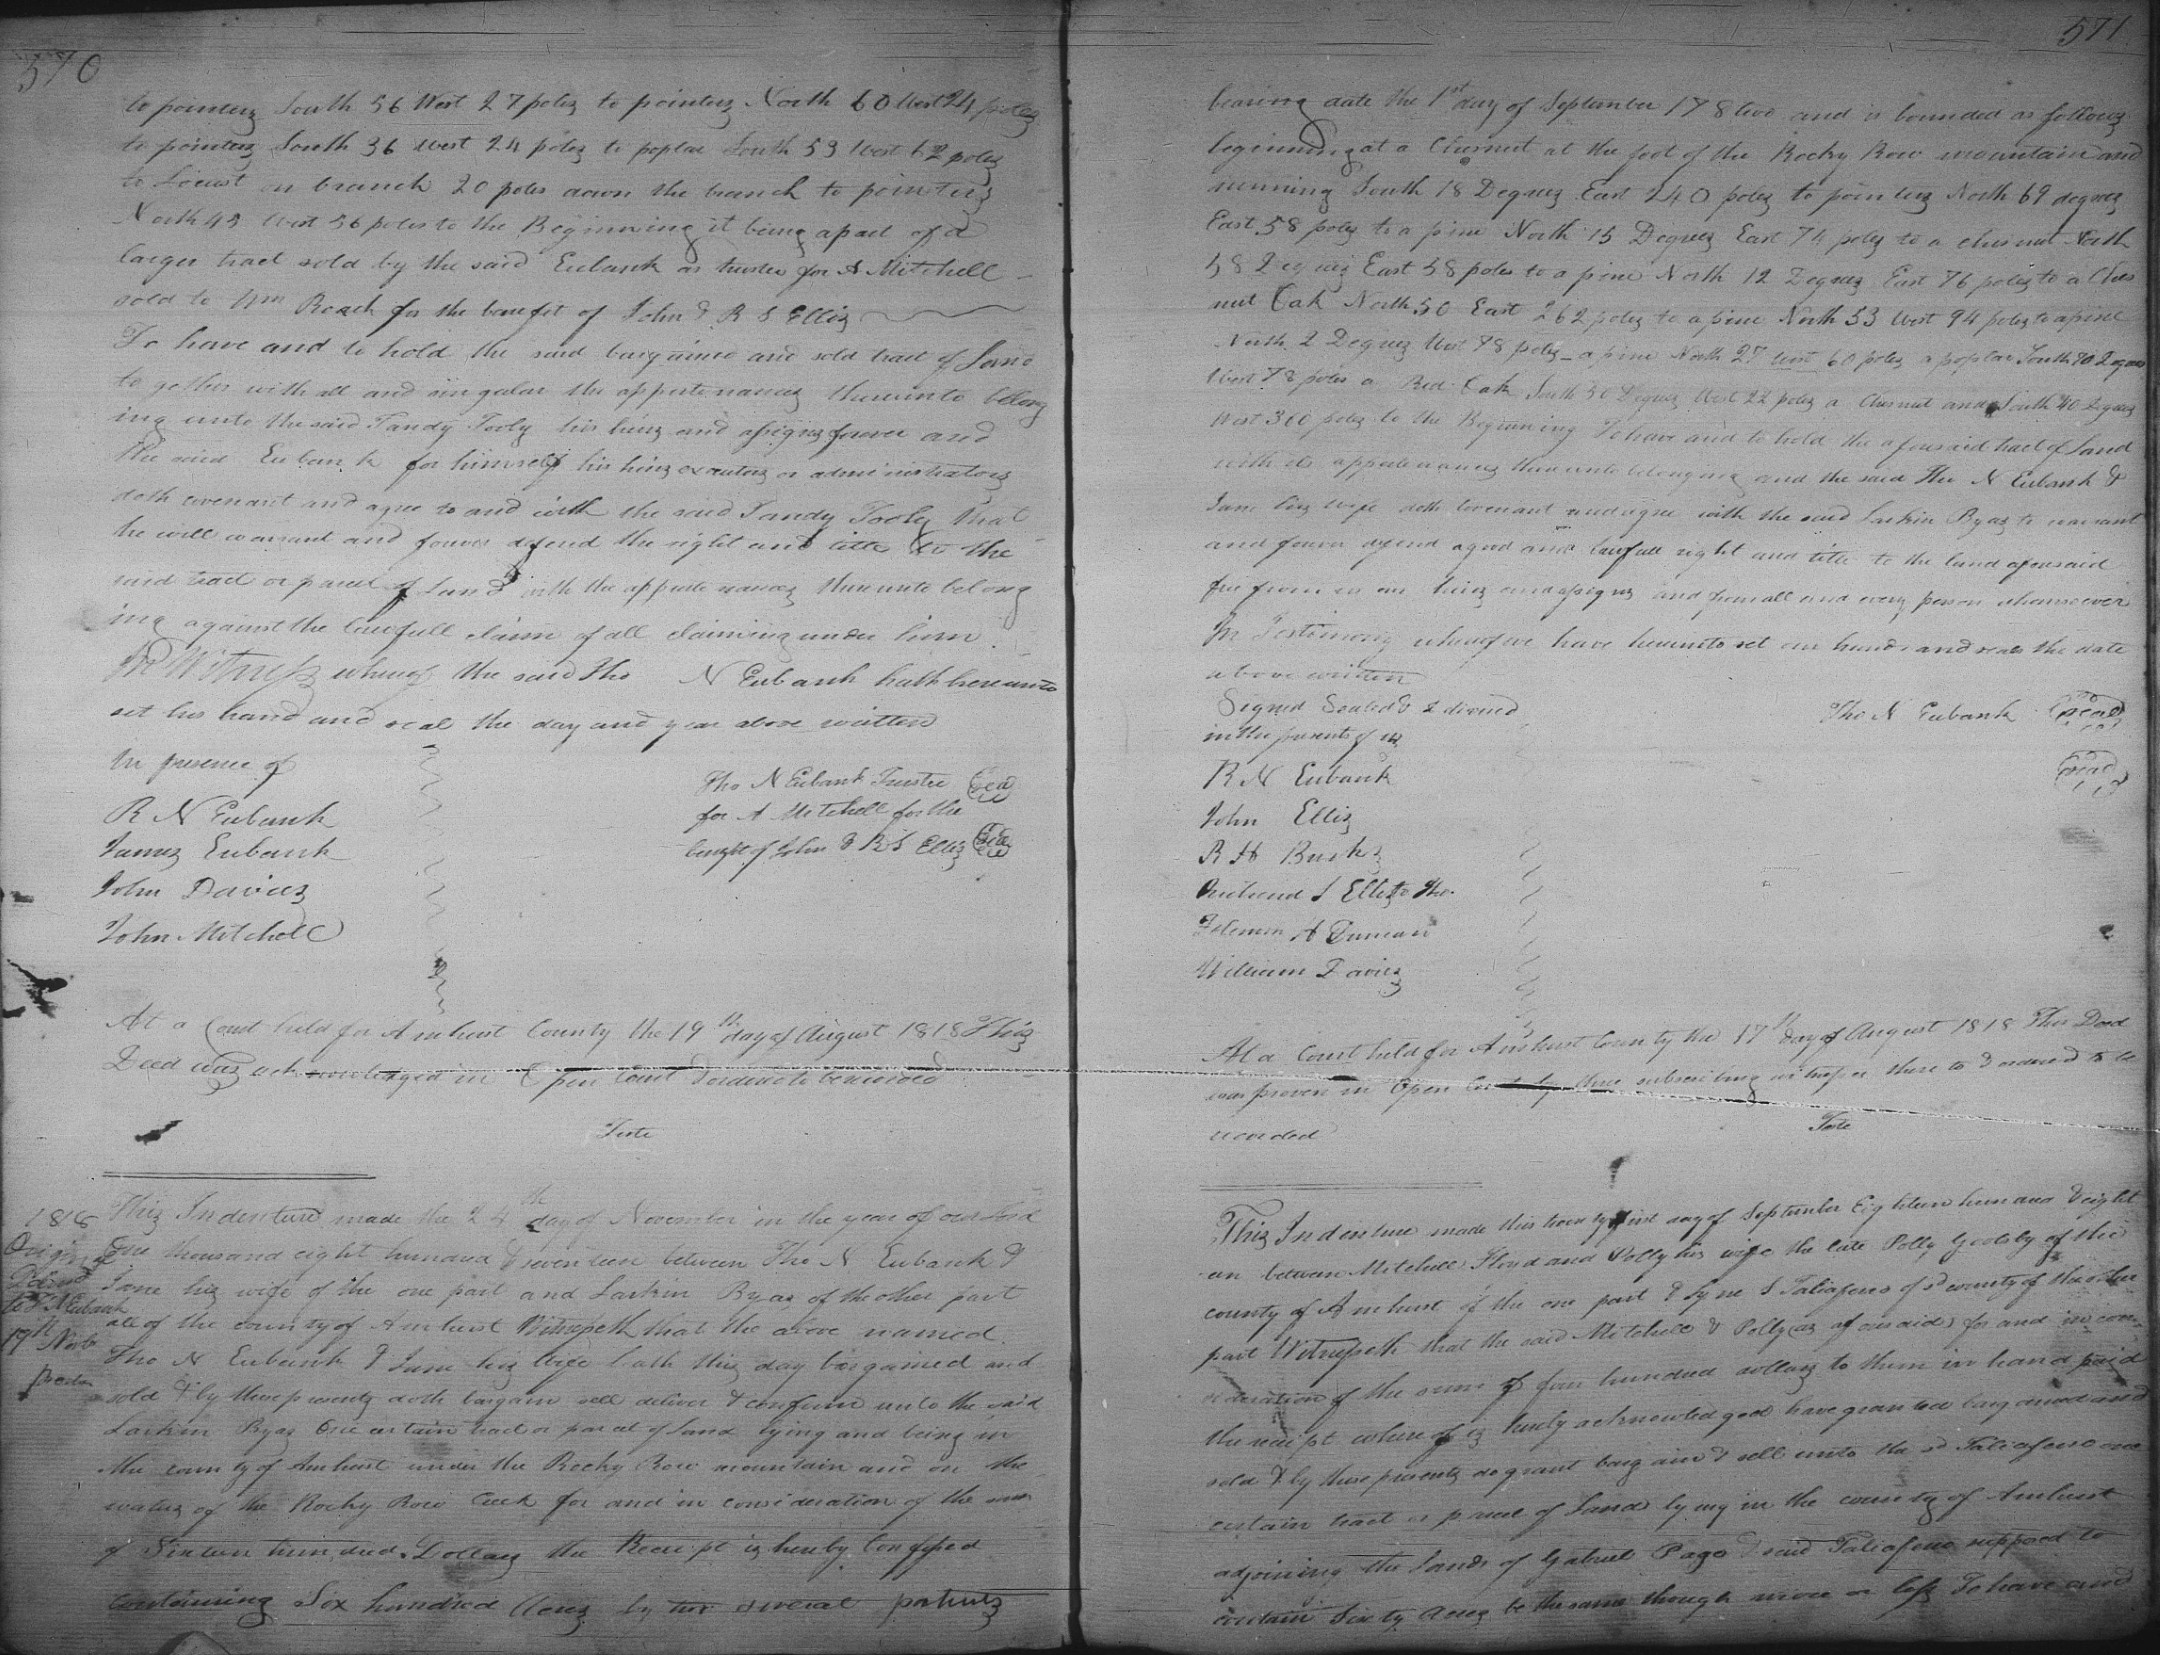 570
to pointers South 56 West 27 poles to pointers North 60 West 24 poles
to pointers South 36 West 24 poles to poplar South 59 West 62 poles
to Locust on branch 20 poles down the branch to pointers
North 45 West 56 poles to the Beginning it being a part of a
larger tract sold by the said Eubank as trustee for A Mitchell
sold to Wm Roach for the benefit of John & R S Ellis
To have and to hold the said bargained and sold tract of Land
together with all and singular the appurtenances thereunto belong
ing unto the said Tandy Tooly his heirs and assigns forever and
the said Eubank for himself his heirs executors or administrators
doth covenant and agree to and with the said Tandy Tooley that
he will warrant and forever defend the right and title to the
said tract or parcel of Land with the appurtenances thereunto belong
ing against the lawfull claim of all claiming under him
In Witness whereof the said Tho N Eubank hath hereunto
set his hand and seal the day and year above written
In presence of
R N Eubank
James Eubank
John Davies
John Mitchell
Tho N Eubank Trustee Seal
for A Mitchell for the
benefit of John & R S Ellis Seal
At a Court held for Amherst County the 19th day of August 1818 This
Deed was acknowledged in Open Court & ordered to be recorded
Teste
1818
Origin
Delivd
to T N Eubank
19th Novbr
This Indenture made the 24th day of November in the year of our Lord
One thousand eight hundred & seventeen between Tho N Eubank &
Jane his wife of the one part and Larkin Byas of the other part
all of the county of Amherst Witnesseth that the above named
Tho N Eubank & Jane his wife hath this day bargained and
sold & by these presents doth bargain sell deliver & confirm unto the said
Larkin Byas One certain tract or parcel of land lying and being in
the county of Amherst under the Rocky Row mountain and on the
waters of the Rocky Row Creek for and in consideration of the sum
of Sixteen hundred Dollars the Receipt is hereby Confessed
containing Six hundred Acres by two several patents
571
bearing date the 1st day of September 178 two and is bounded as follows
beginning at a Chesnut at the foot of the Rocky Row mountain and
running South 18 Degrees East 240 poles to pointers North 69 degrees
East 58 poles to a pine North 15 Degrees East 74 poles to a chesnut North
58 Degrees East 58 poles to a pine North 12 Degrees East 76 poles to a Ches
nut Oak North 50 East 262 poles to a pine North 53 West 94 poles to a pine
North 2 Degrees West 78 poles a pine North 27 West 60 poles a poplar South 70 Degrees
West 78 poles a Red Oak South 50 Degrees West 22 poles a Chesnut and South 40 Degrees
West 360 poles to the Beginning To have and to hold the aforesaid tract of Land
with its appurtenances thereunto belonging and the said Tho N Eubank &
Jane his wife doth covenant and agree with the said Larkin Byas to warrant
and forever defend a good and lawfull right and title to the land aforesaid
free from us our heirs and assigns and from all and every person whomsoever
In Testimony whereof we have hereunto set our hands and seals the date
above written
Signed Sealed & delivered
in the presents of us
Tho N Eubank Seal
Seal
R N Eubank
John Ellis
R H Burks
S Ellis to Tho.
H Duncan
William Davies
At a Court held for Amherst County the 17th day of August 1818 This Deed
was proven in Open Court by three subscribing witnesses thereto & ordered to be
recorded
Teste
This Indenture made this twenty first day of September Eighteen hundred & eight
een between Mitchell Floyd and Polly his wife the late Polly Goolsby of the
county of Amherst of the one part & Syne S Taliaferro of sd county of the other
part Witnesseth that the said Mitchell & Polly (as aforesaid) for and in con
sideration of the sum of four hundred dollars to them in hand paid
the receipt whereof is hereby acknowledged have granted bargained and
sold & by these presents do grant bargain & sell unto the sd Taliaferro one
certain tract or parcel of Land lying in the county of Amherst
adjoining the Lands of Gabriel Page & said Taliaferro supposed to
contain Sixty Acres be the same though more or less To have and